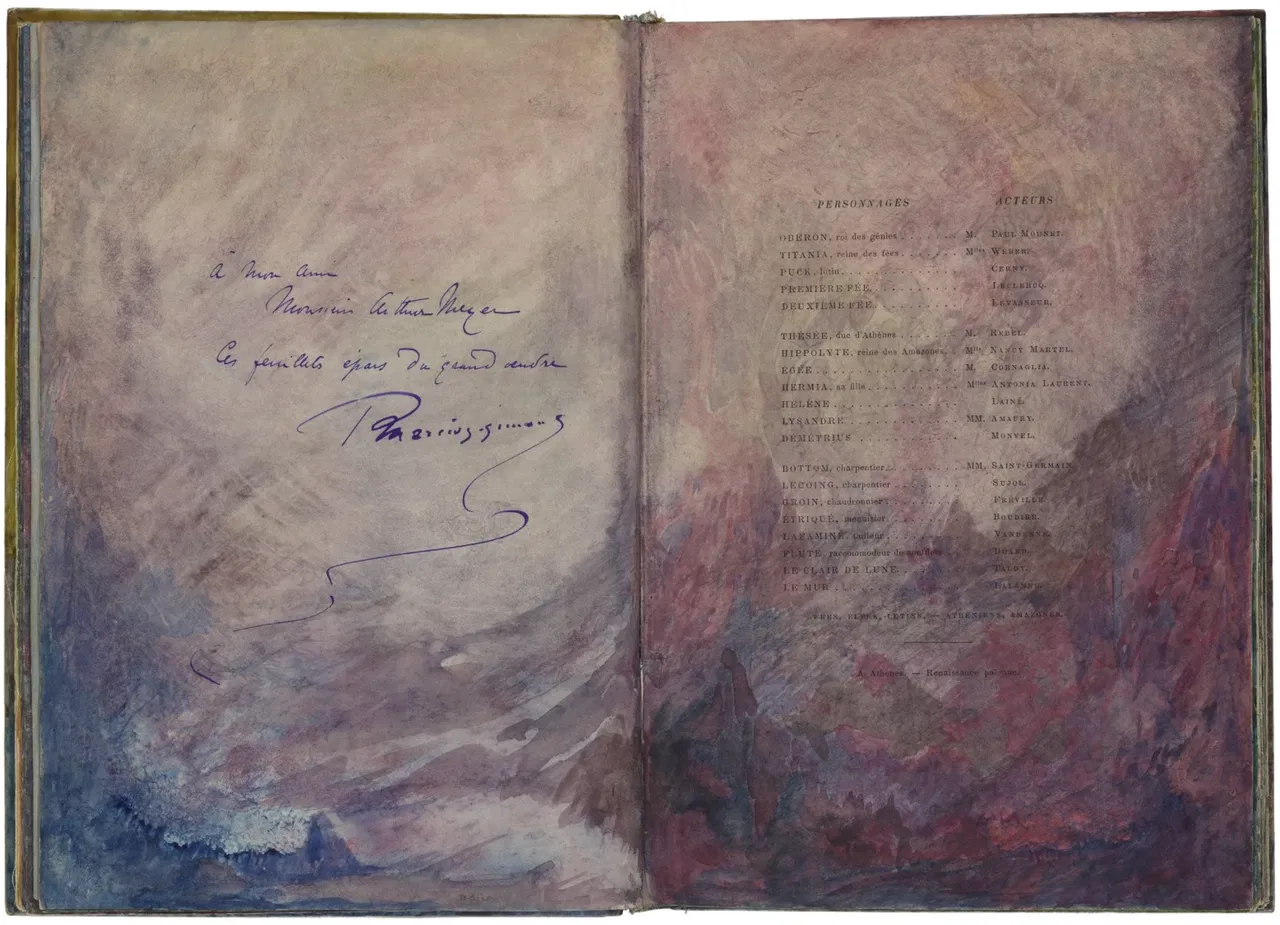 à mon ami
Monsieur Arthur Meyer
Ces feuillets épars du grand œuvre
PERSONNAGES ACTEURS
OBERON, roi des génies . . . . . . . M. PAUL MOUNET.
TITANIA, reine des fées . . . . . . . Mlles WEBER.
PUCK, lutin . . . . . . . . . . . . CERNY.
PREMIÈRE FÉE . . . . . . . . . . LECLERCQ.
DEUXIÈME FÉE . . . . . . . . . . LEVASSEUR.
THÉSÉE, duc d'Athènes . . . . . . . M. REBEL.
HIPPOLYTE, reine des Amazones . . Mlle NANCY MARTEL.
ÉGÉE . . . . . . . . . . . . . . . M. CORNAGLIA.
HERMIA, sa fille . . . . . . . . . . . Mlles ANTONIA LAURENT.
HÉLÈNE . . . . . . . . . . . . . LAINÉ.
LYSANDRE . . . . . . . . . . . . MM. AMAURY.
DÉMÉTRIUS . . . . . . . . . . . MONVEL.
BOTTOM, charpentier . . . . . . . . MM. SAINT-GERMAIN.
LECOING, charpentier . . . . . . . . SUJOL.
GROIN, chaudronnier . . . . . . . . FRÉVILLE.
ÉTRIQUÉ, menuisier . . . . . . . . BOUDIER.
LAFAMINE, tailleur . . . . . . . . .
FLUTE, raccommodeur de soufflets . .
LE CLAIR DE LUNE . . . . . . . . TALDY.
LE MUR . . . . . . . . . . . . .
FÉES, ELFES, LUTINS, — ATHÉNIENS, AMAZONES.
A Athènes. — Renaissance païenne.